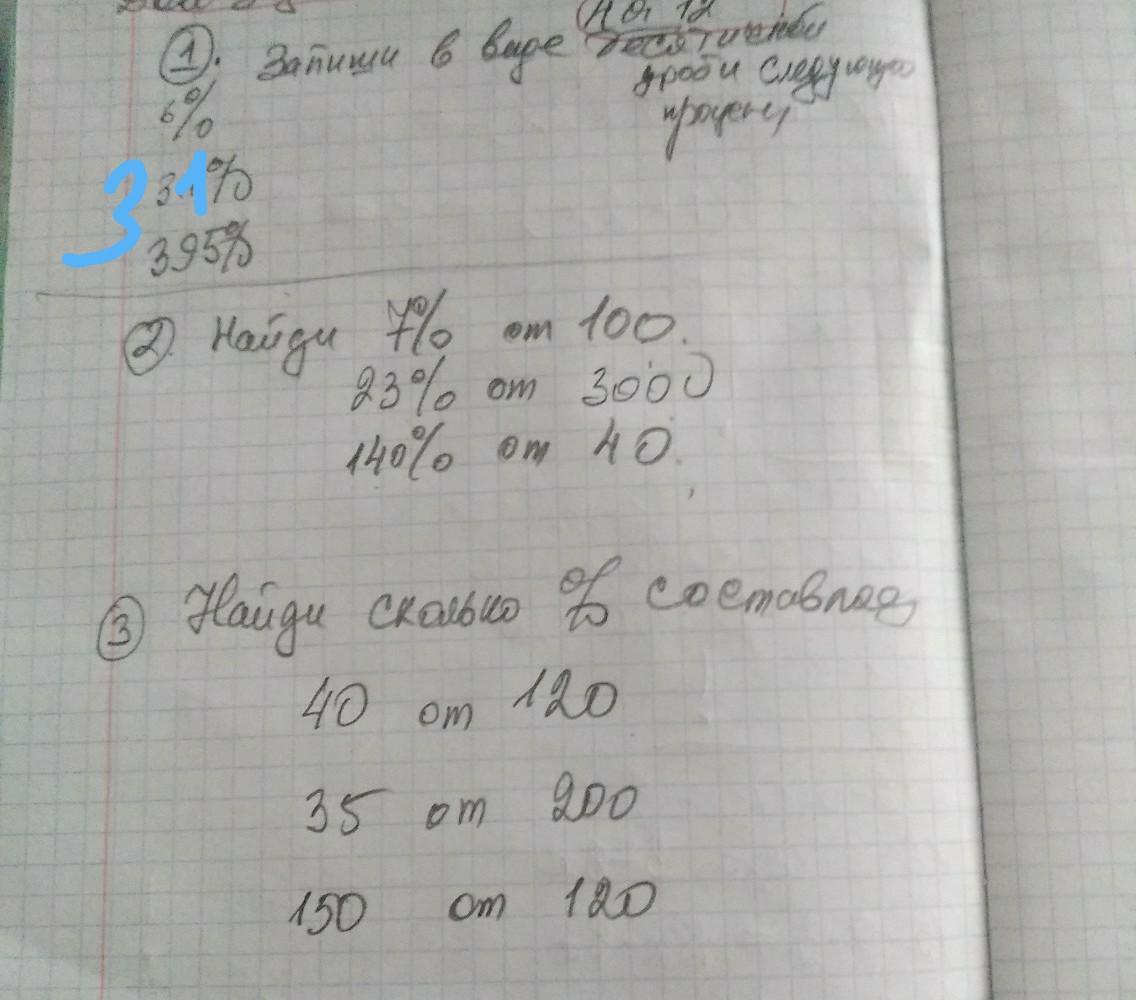 ① Запиши в виде десятичной
дроби следующие
процент
6%
31%
31
395%
② Найди 7% от 100.
23% от 3000
140% от 40.
③ Найди сколько % составляет
40 от 120
35 от 200
150 от 120